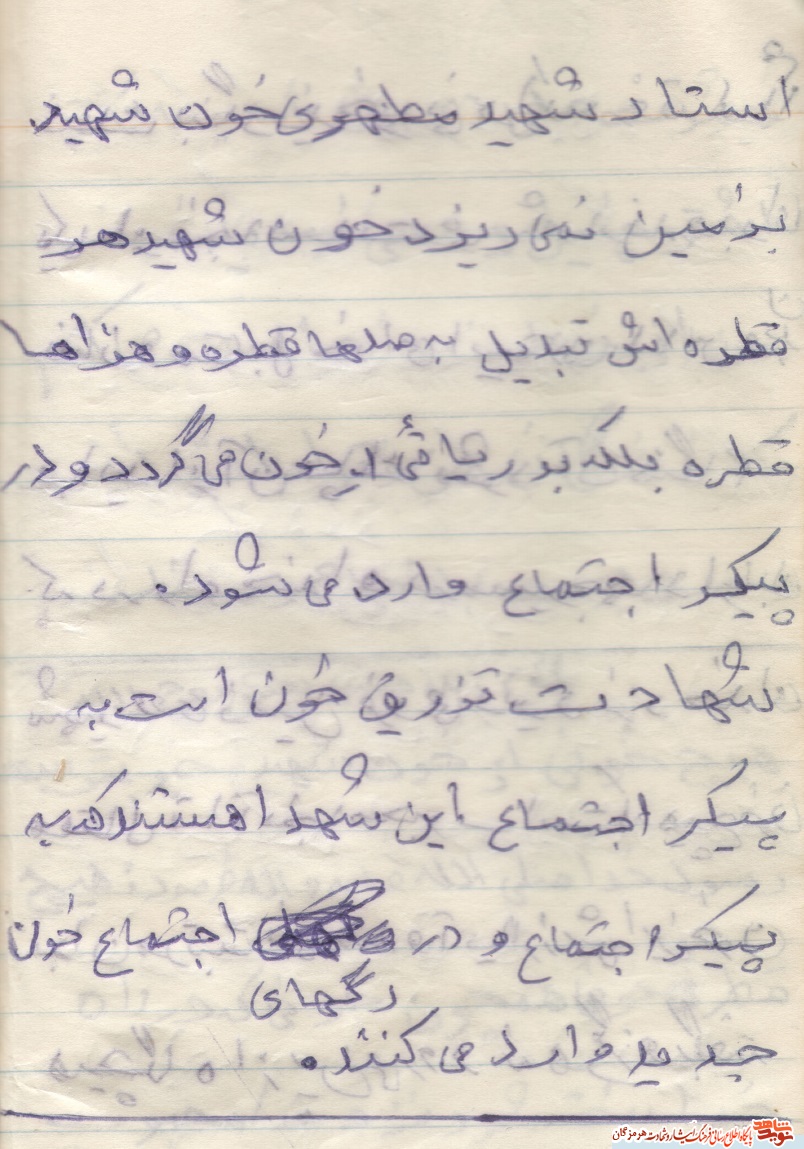 استاد شهید مطهری خون شهید
بزمین نمی ریزد خون شهید هر
قطره اش تبدیل به صدها قطره و هزاها
قطره بلکه بدریائی از خون می گردد و در
پیکر اجتماع وارد می شود.
شهادت تزریق خون است به
پیکر اجتماع این شهدا هستند که به
پیکر اجتماع و در اجتماع خون
رگهای
جدید وارد می کنند.
نوید شاهد پایگاه اطلاع رسانی فرهنگ ایثار و شهادت هرمزگان